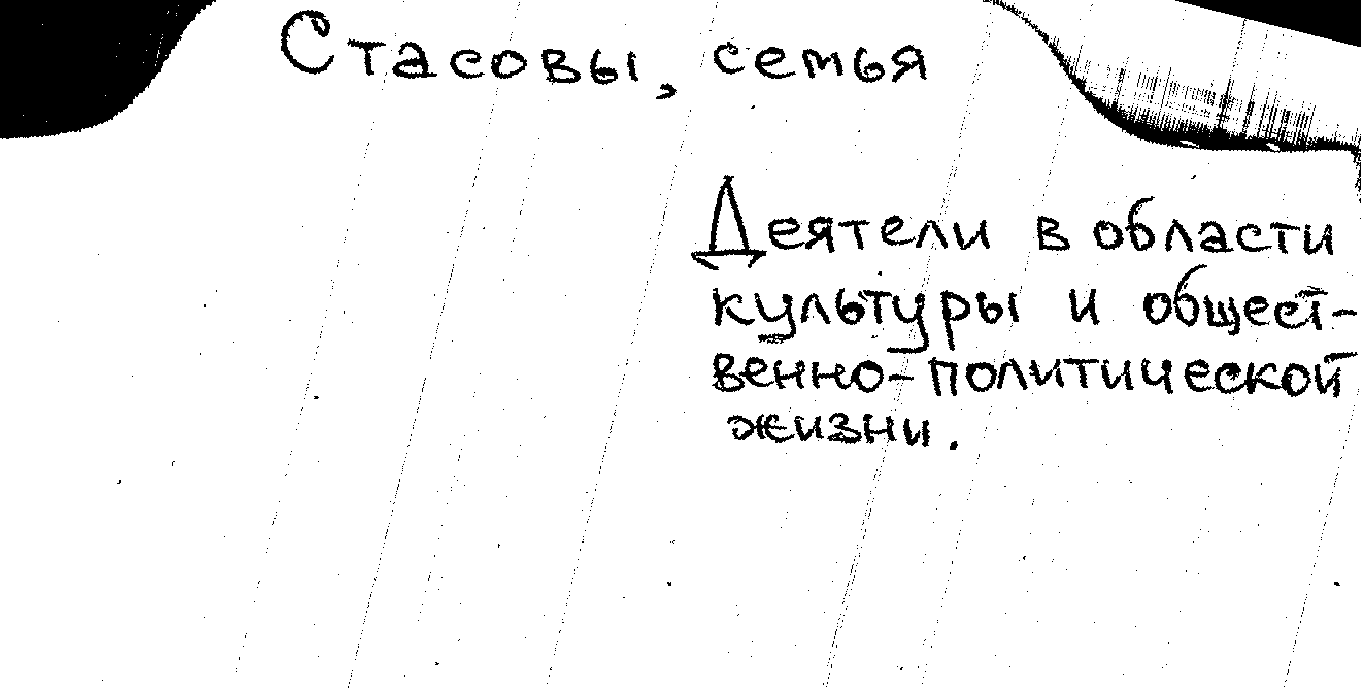 Стасовы, семья
Деятели в области
культуры и общест-
венно-политической
жизни.